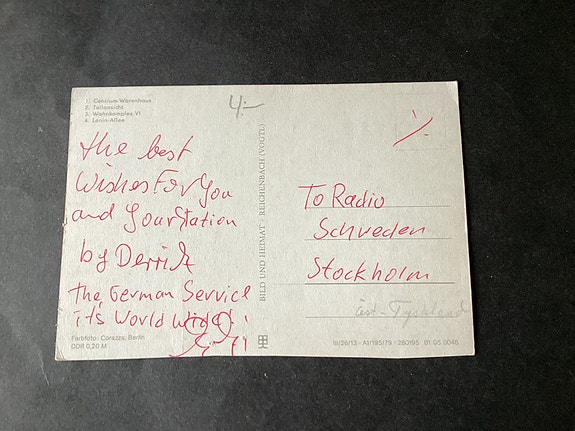 1. Centrum-Warenhaus
2. Teilansicht
3. Wohnkomplex VI
4. Lenin-Allee
4:-
the best
Wishes For You
and YourStation
by Derrick
the German Service
it's World Wide!
Farbfoto: Corazza, Berlin
DDR 0,20 M
BILD UND HEIMAT · REICHENBACH (VOGTL)
To Radio
Schweden
Stockholm
öst-Tyskland
III/26/13 · A1/195/79 · 280195 01 05 0046